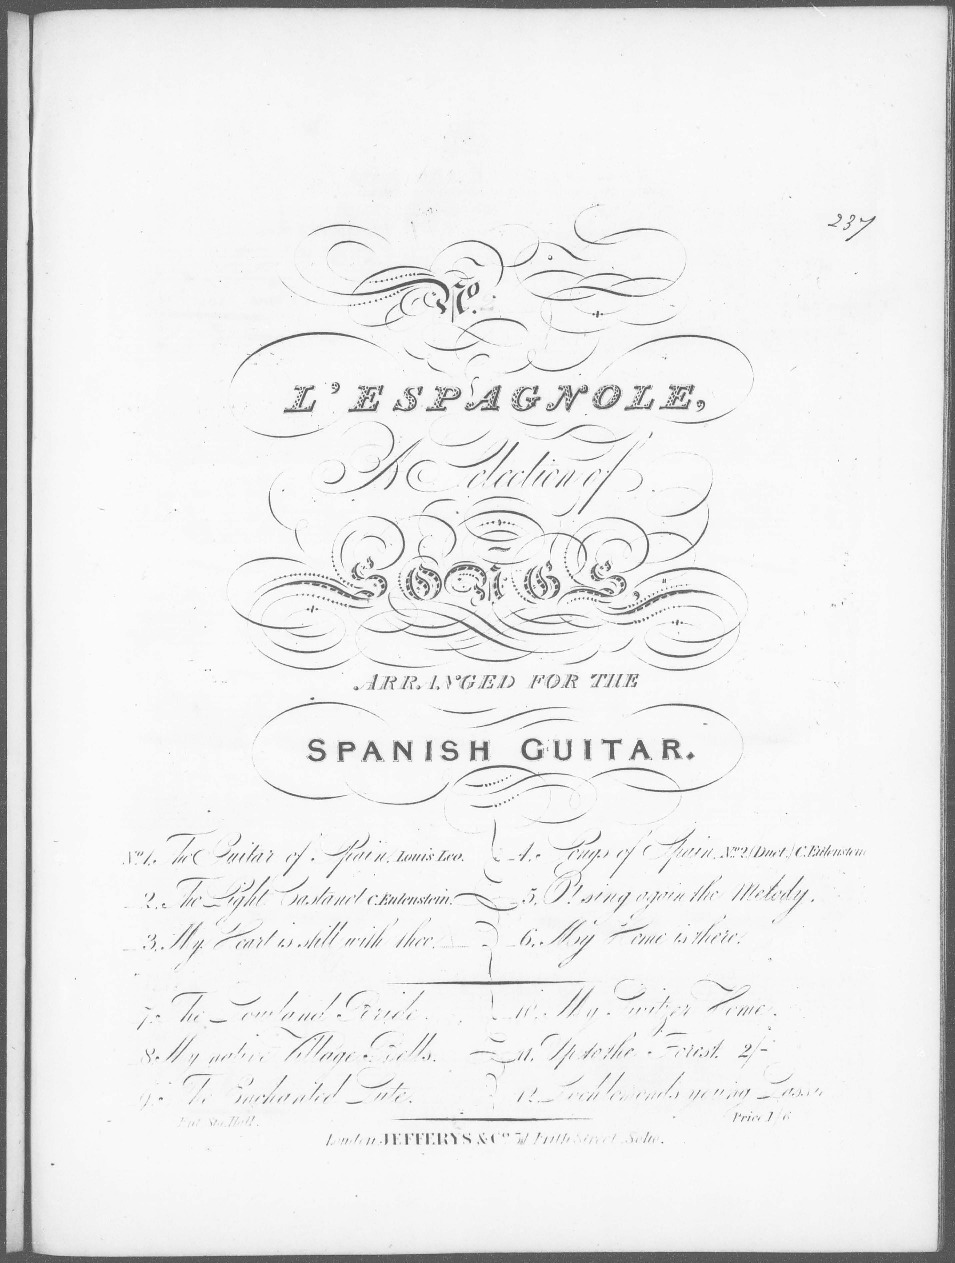 237
No.
L'ESPAGNOLE,
A Selection of
SONGS,
ARRANGED FOR THE
SPANISH GUITAR.
No. 1. The Guitar of Spain. Louis Leo.
2. The Light Castanet C. Eulenstein.
3. My Heart is still with thee.
4. Songs of Spain. No. 2. (Duet) C. Eulenstein
5. O! sing again the Melody.
6. My Home is there.
7. The Lowland Bride.
8. My native Village Bells.
9. The Enchanted Lute.
10. My Switzer Home.
11. Up to the Forest. 2/-
12. Lochlomonds young Lassie
Ent. Sta. Hall.
Price 1/6
London JEFFERYS & Co. Frith Street Soho.